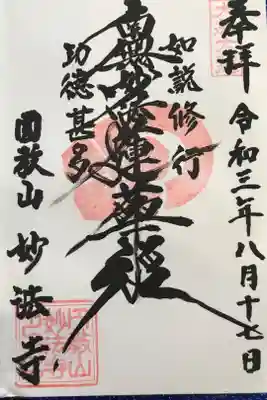 奉拝
令和三年八月十七日
如説修行
南無妙法蓮華経
功徳甚多
妙法寺